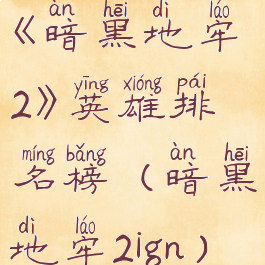 àn hēi dì láo
《暗黑地牢
yīng xióng pái
2》英雄排
míng bǎng àn hēi
名榜（暗黑
dì láo
地牢2ign）